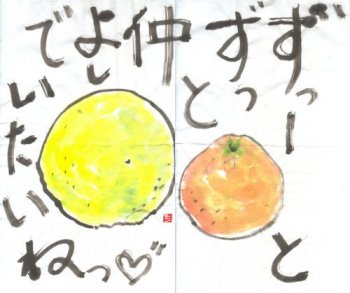 ずっーと
ずっと
仲
よし
でいたい
ねっ♡